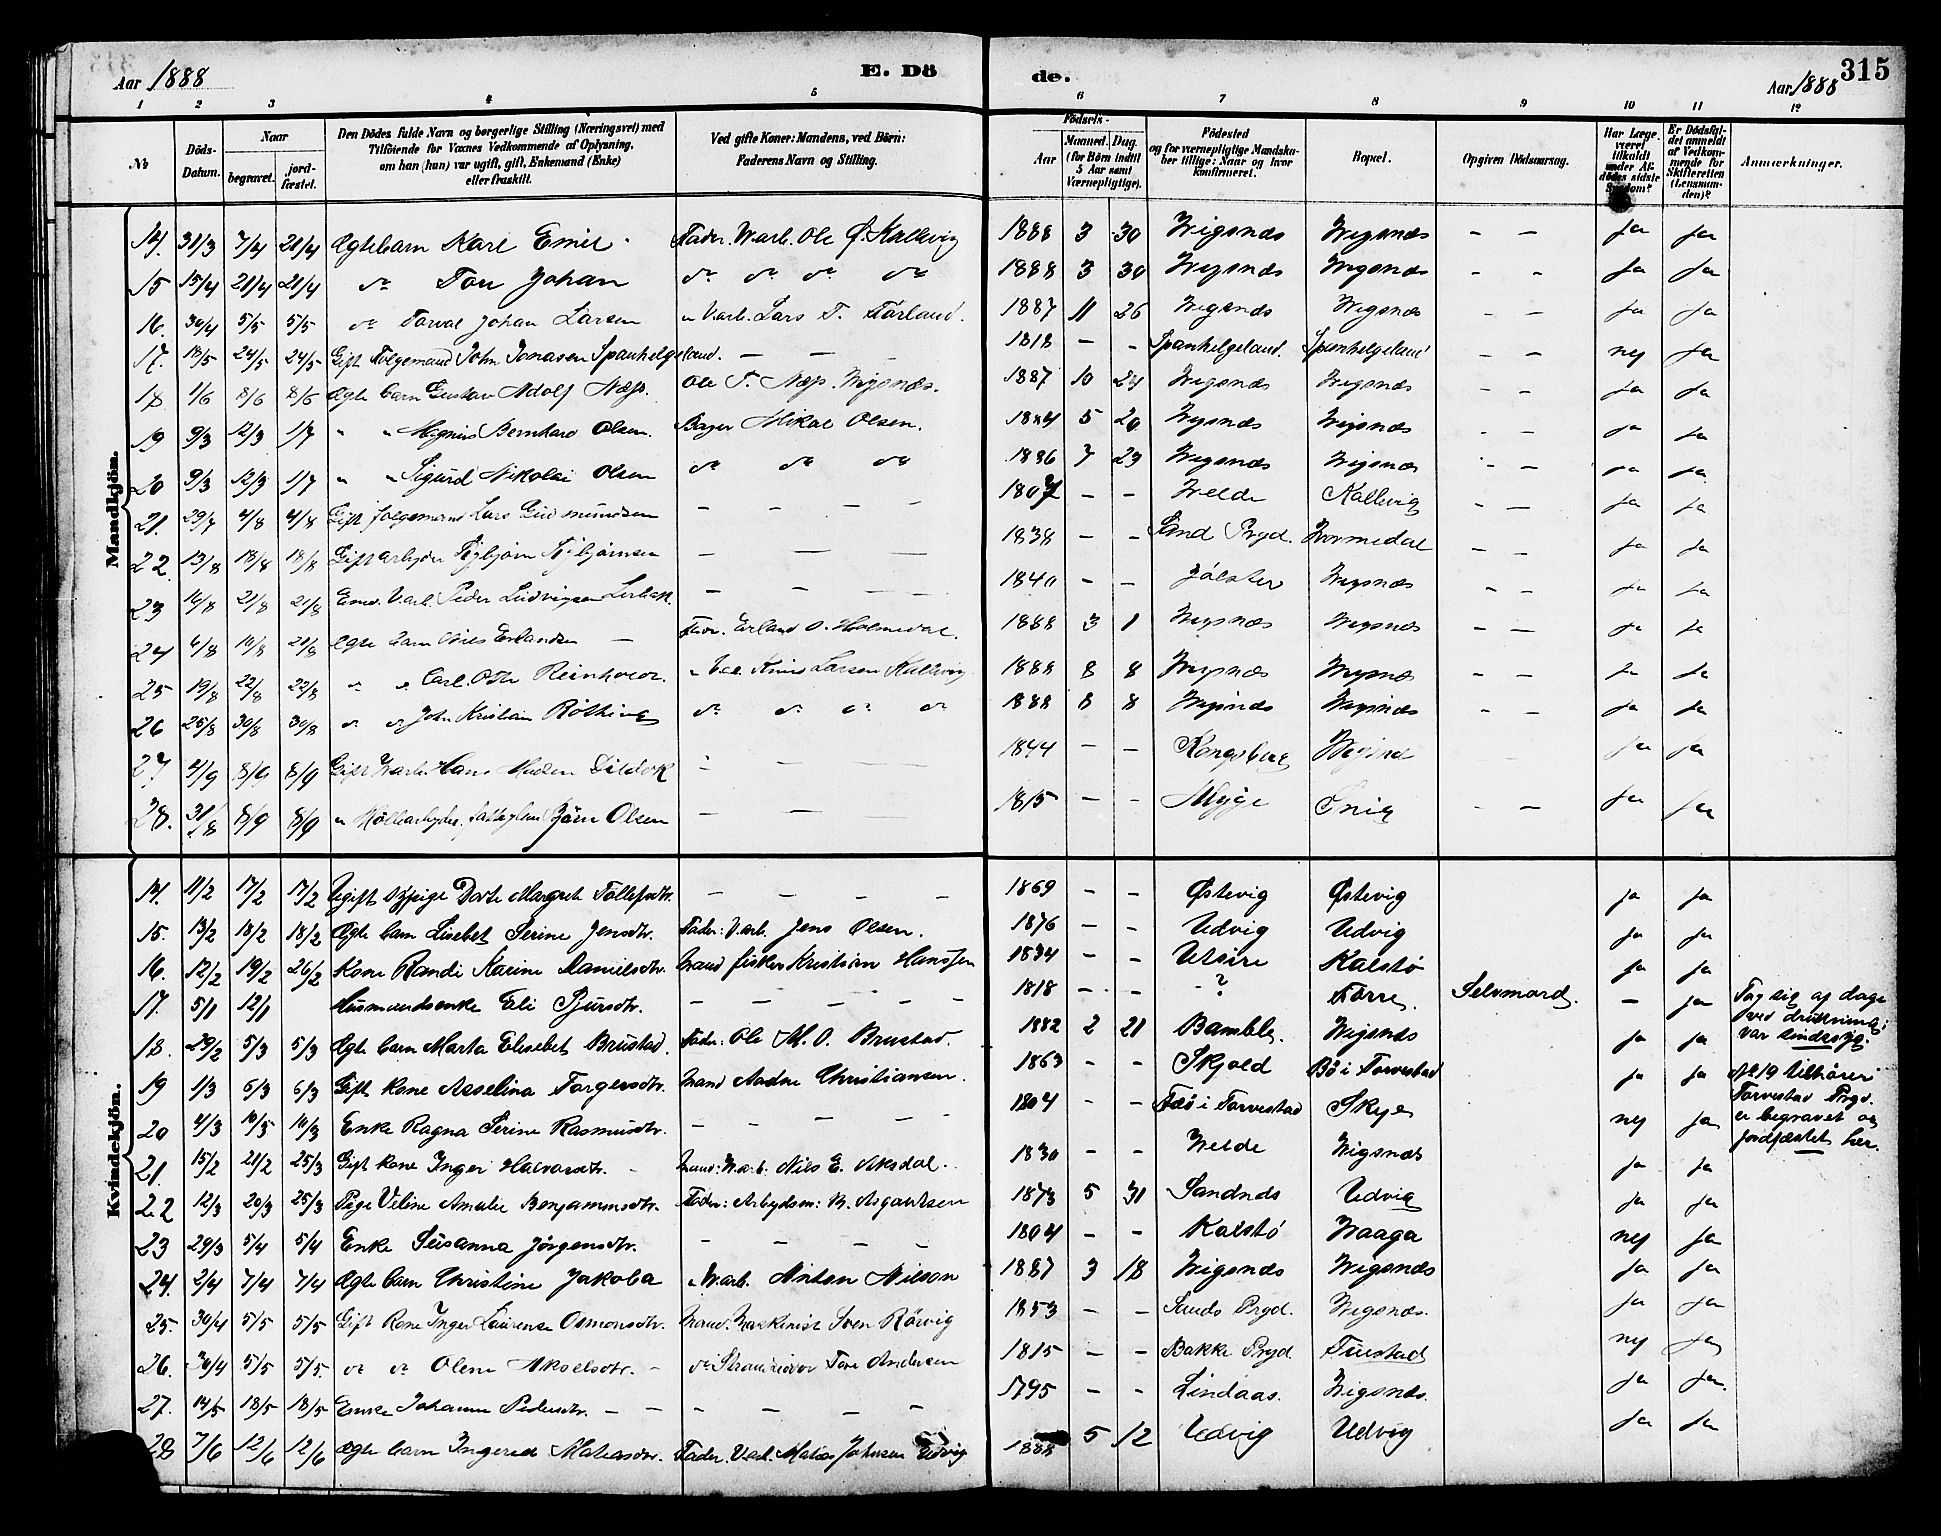 Aar 1888
E. Dö
de.
Aar 1888
315
1 2 3 4 5 6 7 8 9 10 11 12
№
Döds-Datum.
Naar
begravet.
jord-fæstet.
Den Dödes fulde Navn og borgerlige Stilling (Næringsvei) med Tilföiende for Voxnes Vedkommende af Oplysning, om han (hun) var ugift, gift, Enkemand (Enke) eller fraskilt.
Ved gifte Koner: Mandens, ved Börn: Faderens Navn og Stilling.
Födsels-
Aar
Maaned.
Dag.
(for Börn indtil 5 Aar samt Værnepligtige).
Födested og for værnepligtige Mandskaber tillige: Naar og hvor konfirmeret.
Bopæl.
Opgiven Dödsaarsag.
Har Læge været tilkaldt under Afdödes sidste Sygdom?
Er Dödsfaldet anmeldt af Vedkommende for Skifteretten (Lensmanden)?
Anmærkninger.
Mandkjön.
14. 31/3 7/4 21/4 Ægtebarn Karl Emil Fader. Warb. Ole Ø. Kallevig 1888 3 30 Wigsnæs Wigsnæs - - ja ja
15 15/4 21/4 21/4 do Tore Johan do do do do 1888 3 30 Wigsnæs Wigsnæs - - ja ja
16. 30/4 5/5 5/5 do Torval Johan Larsen " Varb. Lars T. Førland. 1887 11 26 Wigsnæs Wigsnæs - - ja ja
17. 18/5 24/5 24/5 Gift Folgemand John Jonasen Spanhelgeland. - - - 1818 - - Spanhelgeland. Spanhelgeland - - nej ja
18 1/6 8/6 8/6 Ægte barn Gustav Adolf Næss. Ole T. Næss. Wigsnæs. 1887 10 24 Wigsnæs Wigsnæs - - ja ja
19 9/3 12/3 1/7 " " Magnus Bernhard Olsen. Bager Mikal Olsen. 1884 5 20 Wigsnæs Wigsnæs - - ja ja
20 9/3 12/3 1/7 " " Sigurd Nikolai Olsen do do do 1886 7 23 Wigsnæs Wigsnæs - - ja ja
21. 29/7 4/8 4/8 Gift folgemand Lars Gudmundsen - - - - 1807 - - Velde Kallevig - - ja ja
22. 13/8 18/8 18/8 Gift arbejder - - - 1838 - - Sand Prgd. - - ja ja
23 16/8 21/8 21/8 Peder Ludvigsen - - - 1840 - - Jølster Wigsnæs - - ja ja
24 6/8 10/8 21/8 Ægte barn Erlandsen - Erland O. 1888 3 1 Wigsnæs Wigsnæs - - ja ja
25 19/8 22/8 22/8 " " Carl Otto Reinhold. Larsen Kallevig 1888 8 8 Wigsnæs Wigsnæs - - ja ja
26 25/8 30/8 30/8 do do John Kristian Røthing do do do do 1888 8 8 Wigsnæs Wigsnæs - - ja ja
27 4/9 8/9 8/9 Gift Warb. Hans - - - 1844 - - Kongsberg - - ja ja
28. 31/8 8/9 8/9 " Bjørn Olsen - - - 1815 - - - - ja ja
Kvindekjön.
14. 11/2 17/2 17/2 Ugift Pige Dorte Margrete Tollefsdtr. - - - - 1869 - - Østevig Østevig ja ja
15. 13/2 18/2 18/2 Ægte barn Lisebet Serine Jensdtr. Fader: Varb. Jens Olsen. 1876 - - Udvig Udvig ja ja
16. 12/2 19/2 26/2 Kone Randi Karine Danielsdtr. Mand fisker Kristian Hanssen 1834 - - Utsire Kalstø ja ja
17. 5/1 12/1 Husmandsenke Eli Sjursdtr. - - - - - 1818 - - ? Førre. Selvmord. - ja Tog sig af dage
ved drukning;
var sindssyg.
18. 29/2 5/3 5/3 Ægte barn Marta Elisebet Brustad. Fader: Ole M. O. Brustad. 1882 2 21 Bamble. Wigsnæs ja ja
19 1/3 6/3 6/3 Gift kone Asselina Torgersdtr. Mand Aadne Christiansen. 1863 - - Skjold Bø i Torvestad ja ja № 19 tilhører
Torvestad Prgd.
er begravet og
jordfæstet her.
20 4/3 10/3 10/3 Enke Ragna Serine Rasmusdtr. - - - - 1804 - - Fæø i Torvestad Skeje nej ja
21. 15/2 21/2 25/3 Gift kone Inger Halvorsdtr. - Mand: Warb. Nils E. Aksdal. 1830 - - Velde Wigsnæs ja ja
22 12/3 20/3 25/3 Pige Veline Amalie Benjaminsdtr. Fader: Arbejdsm: B. Asgautsen 1873 5 31 Sandnæs Udvig ja ja
23 29/3 5/4 5/4 Enke Susanna Jørgensdtr. - - - - 1804 - - Kalstø Vaaga nej ja
24. 2/4 7/4 7/4 Ægte barn Christine Jakoba " Warb. Anton Nilson 1887 3 18 Wigsnæs Wigsnæs ja ja
25. 30/4 5/5 5/5 Gift Kone Inger Laurense Osmundsdtr. Mand. Maskinist Sven Rørvig 1853 - - Sands Prgd. Wigsnæs. ja ja
26. 30/4 5/5 5/5 do do Olene Akselsdtr. - do Strandsidder Tore Andersen 1815 - - Bakke Prgd. nej ja
27. 14/5 18/5 18/5 Enke Johanne Pedersdtr. - - - - - 1795 - - Lindaas. Wigsnæs. ja ja.
28 7/6 12/6 12/6 Ægte barn Ingerid Matiasdtr. Fader. Varb. Matias Johnsen Udvig 1888 5 12 Udvig Udvig ja ja